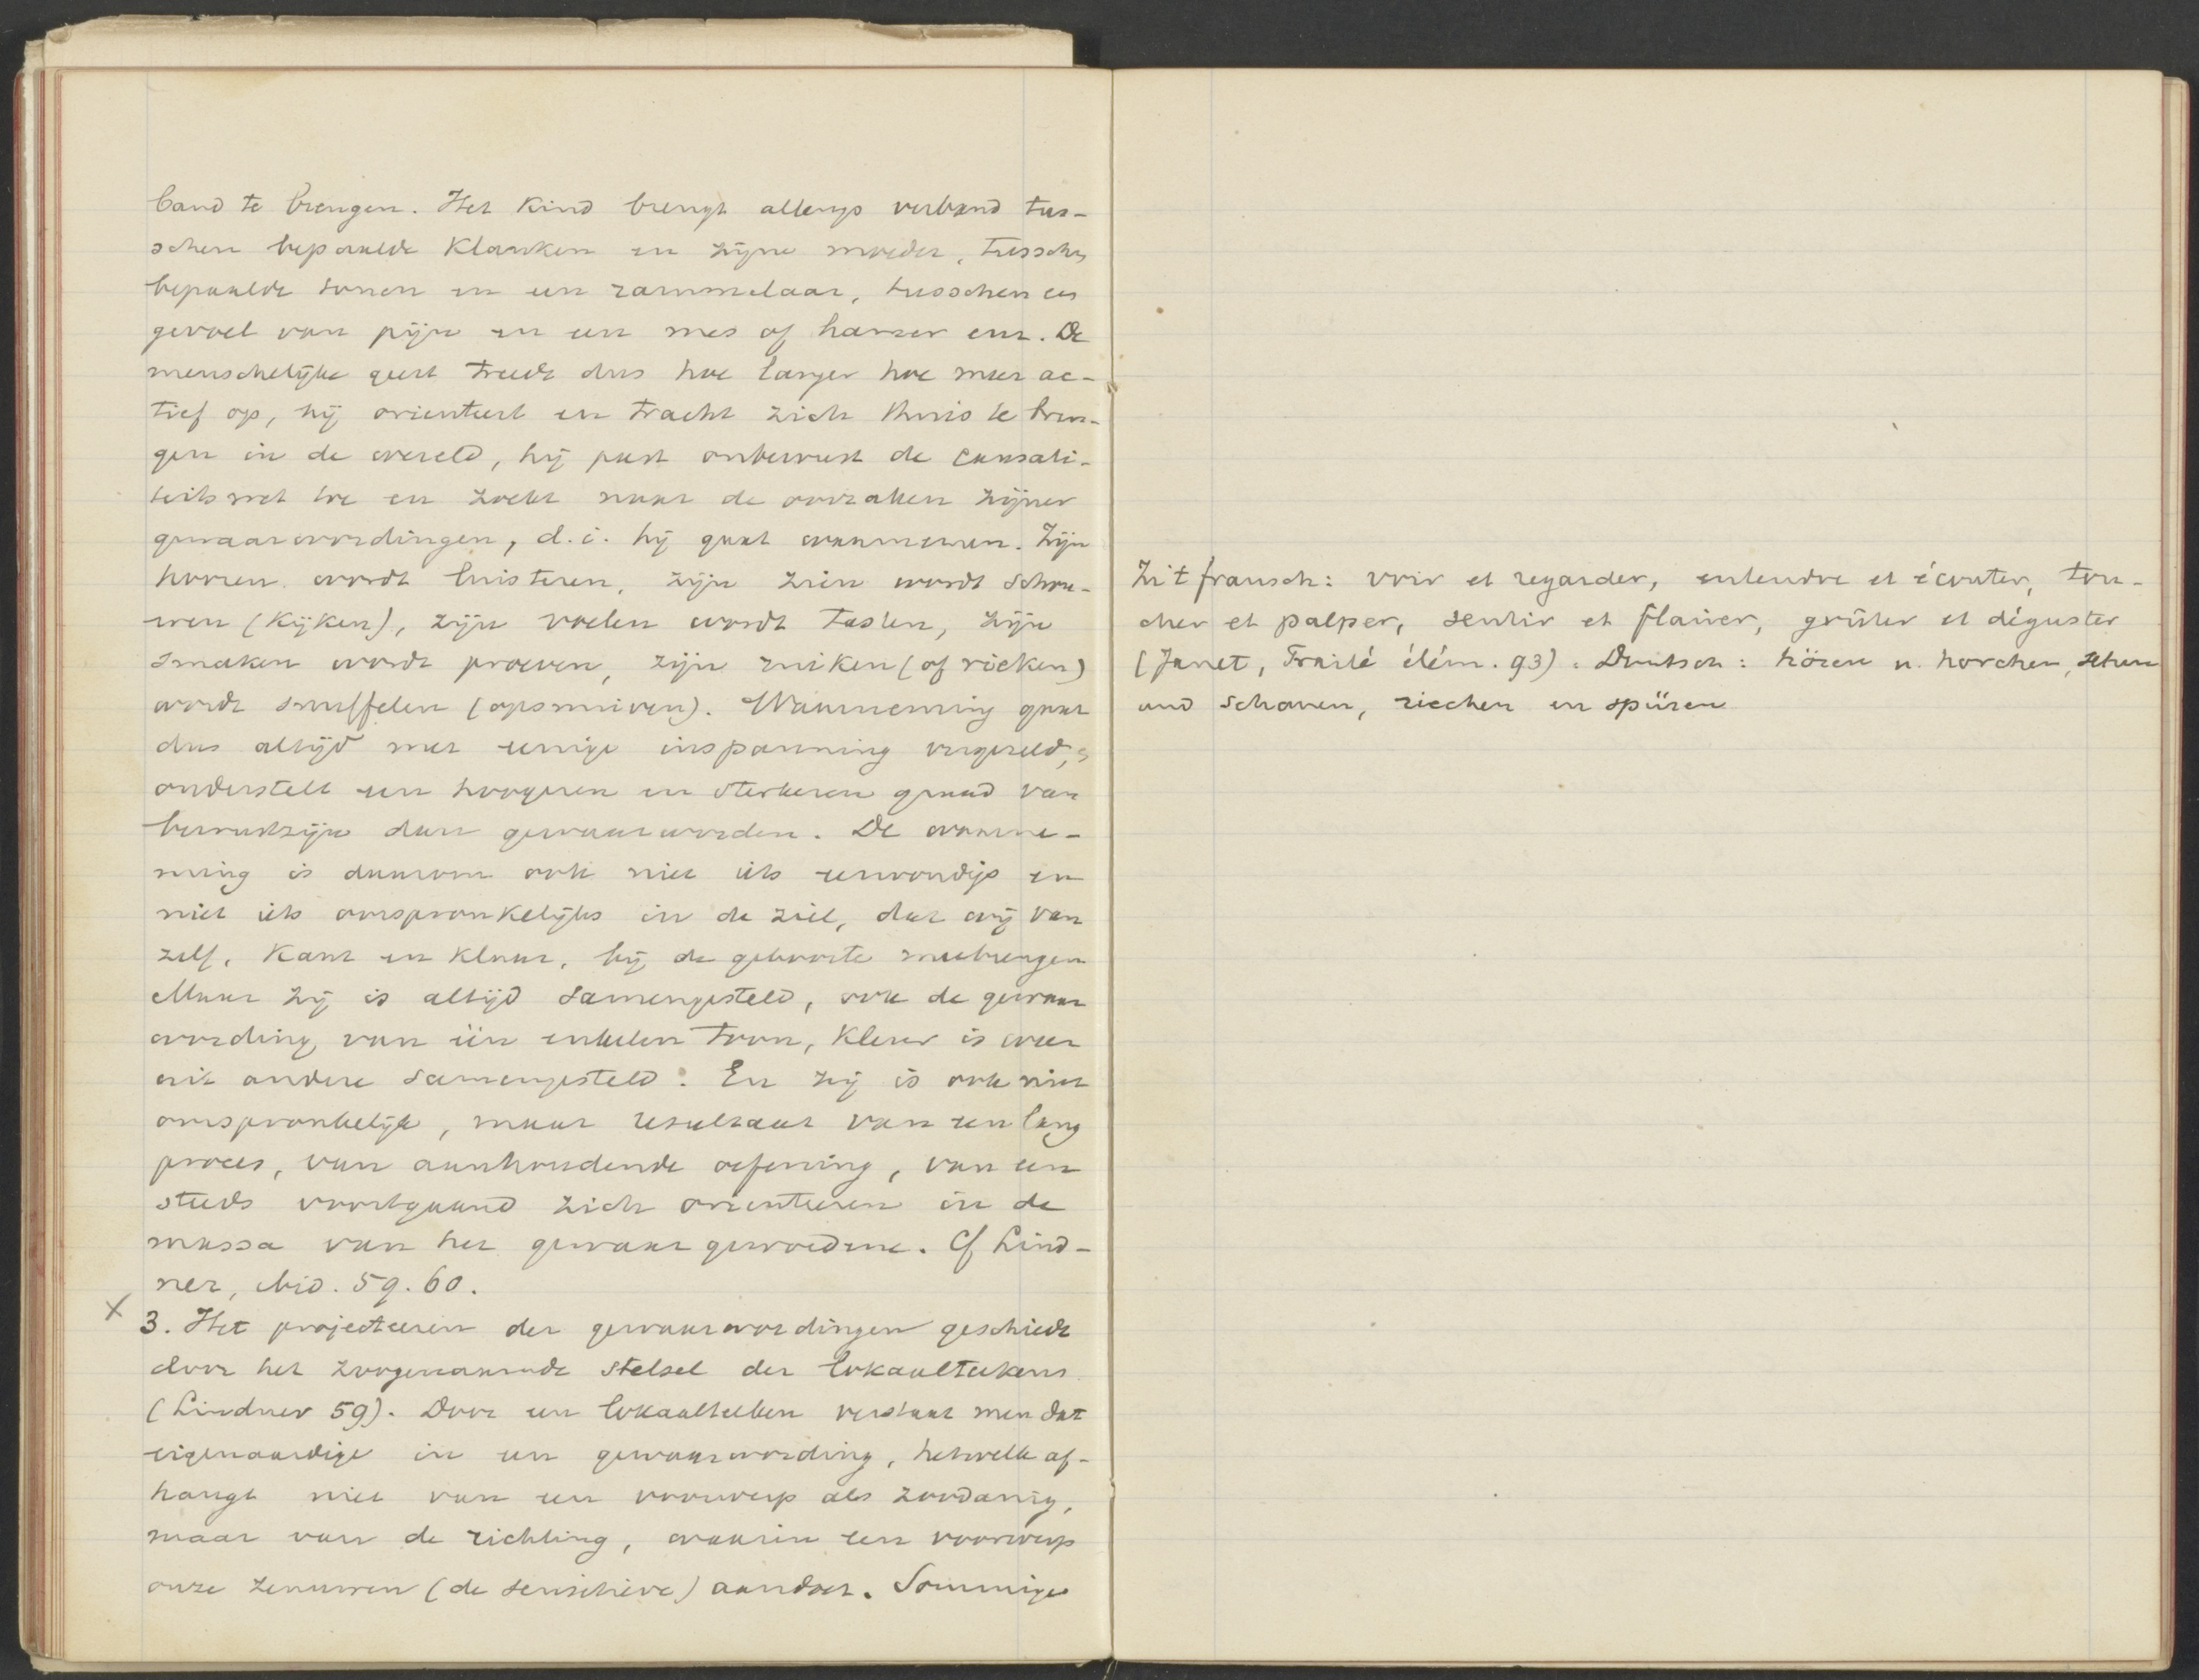 band te brengen. Het kind brengt allengs verband tus-
schen bepaalde klanken en zijne moeder, tusschen
bepaalde tonen en een rammelaar, tusschen een
gevoel van pijn en een mes of hamer enz. De
menschelijke geest treedt dus hoe langer hoe meer ac-
tief op, hij orienteert en tracht zich thuis te bren-
gen in de wereld, hij past onbewust de causali-
teitswet toe en zoekt naar de oorzaken zijner
gewaarwordingen, d.i. hij gaat waarnemen. Zijn
hooren wordt luisteren, zijn zien wordt schou-
wen (kijken), zijn voelen wordt tasten, zijn
smaken wordt proeven, zijn ruiken (of rieken)
wordt snuffelen (opsnuiven). Waarneming gaat
dus altijd met eenige inspanning vergezeld,
onderstelt een hoogeren en sterkeren graad van
bewustzijn dan gewaarworden. De waarne-
ming is daarom ook niet iets eenvoudigs en
niet iets oorspronkelijks in de ziel, dat wij van
zelf, kant en klaar, bij de geboorte meebrengen
Maar zij is altijd samengesteld, ook de gewaar
wording van één enkelen toon, kleur is weer
uit andere samengesteld. En zij is ook niet
oorspronkelijk, maar resultaat van een lang
proces, van aanhoudende oefening, van een
steeds voortgaand zich orienteeren in de
massa van het gewaargewordene. Cf Lind-
ner, ibid. 59. 60.
x
3. Het projecteeren der gewaarwordingen geschiedt
door het zoogenaamde stelsel der lokaalteekens
(Lindner 59). Door een lokaalteeken verstaat men dat
eigenaardige in een gewaarwording, hetwelk af-
hangt niet van een voorwerp als zoodanig,
maar van de richting, waarin een voorwerp
onze zenuwen (de sensitieve) aandoet. Sommige
Zit fransch: voir et regarder, entendre et écouter, tou-
cher et palper, sentir et flairer, goûter et déguster
(Janet, Traité élém. 93). Duitsch: hören u. horchen, sehen
und schauen, riechen en spüren